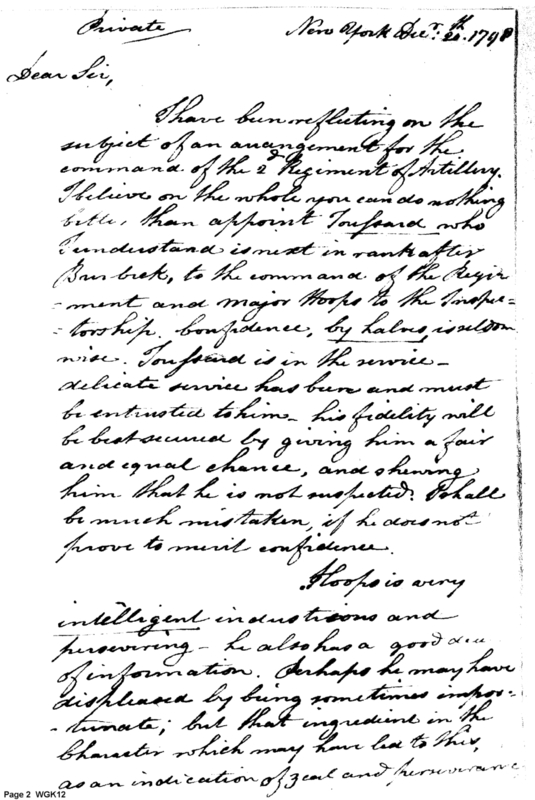 Private
New York Decr. 20th. 1798
Dear Sir,
I have been reflecting on the
subject of an arrangement for the
command of the 2d Regiment of Artillery.
I believe on the whole you can do nothing
better, than appoint Toussard who
I understand is next in rank after
Burbeck, to the command of the Regi-
-ment and major Hoops to the Inspec-
-torship. Confidence, by halves, is seldom
wise. Toussard is in the service –
delicate service has been and must
be entrusted to him – his fidelity will
be best secured by giving him a fair
and equal chance, and shewing
him that he is not suspected. I shall
be much mistaken, if he does not
prove to merit confidence.
Hoops is very
intelligent industrious and
persevering – he also has a good deal
of information. Perhaps he may have
displeased by being sometimes impor-
-tunate; but that ingredient in the
Character which may have led to this,
as an indication of zeal and perseverance
Page 2 WGK12